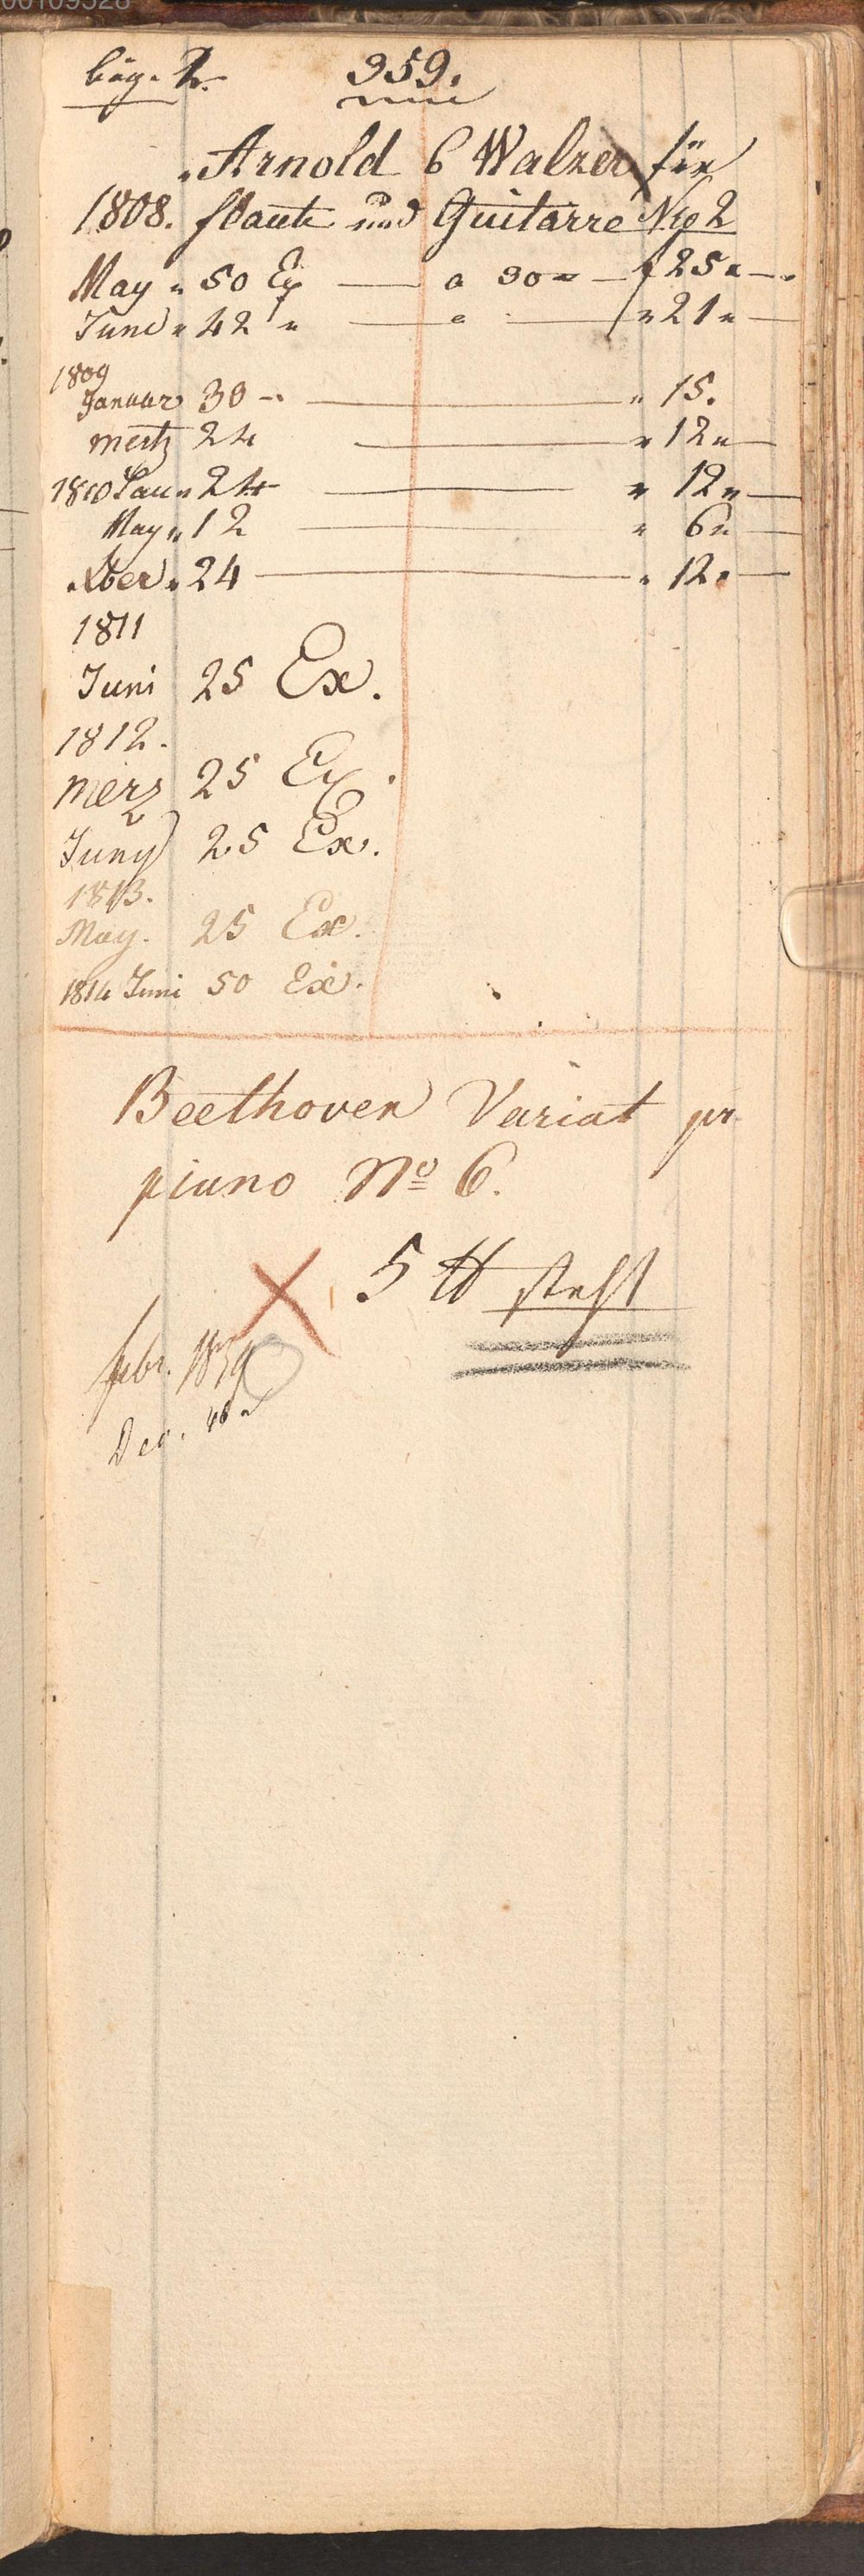 00109528
bög. 2.
959.
Arnold 6 Walzer für
1808. flaute und Guitarre Nro 2
May " 50 Ex — a 30 " — f 25 " —
Juni " 42 " — " — " 21 " —
1809
Januar 30 — " 15.
mertz 24 — " 12 " —
1810 Jan " 24 — " 12 " —
May " 12 — " 6 " —
Xber " 24 — " 12 " —
1811
Juni 25 Ex.
1812.
merz 25 Ex.
Juny 25 Ex.
1813.
May. 25 Ex.
1814 Juni 50 Ex.
Beethoven Variat pr
piano No 6.
5 tt steht
febr. 1839
Dec. 40